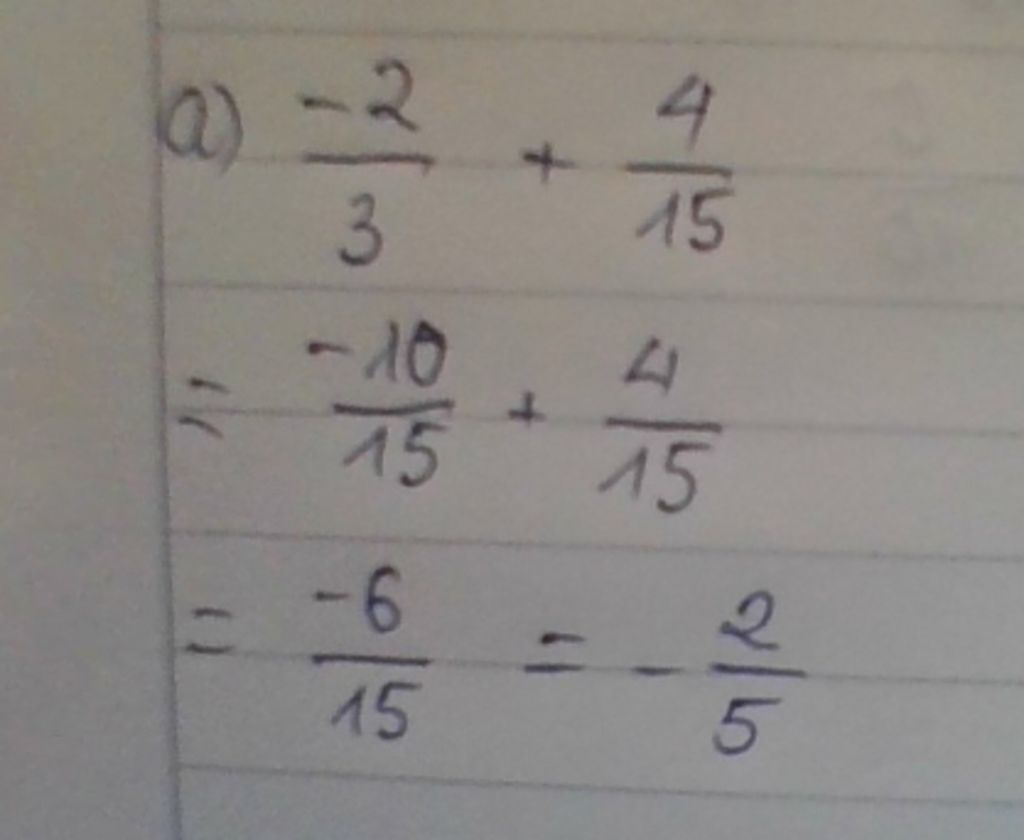 a) -2/3 + 4/15
= -10/15 + 4/15
= -6/15 = - 2/5